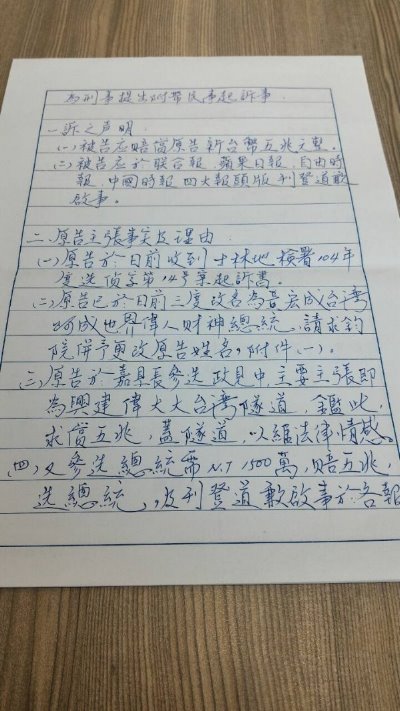 為刑事提出附帶民事起訴事.
一訴之声明:
(一)被告应賠償原告新台幣五兆元整.
(二)被告应於联合報.蘋果日報.自由時
報.中國時報四大報頭版刊登道歉
啟事。
二、原告主張事实及理由
(一)原告於日前收到士林地檢署104年
度选偵字第14号案起訴書。
(二)原告已於日前三度改名為晋宏成台湾
成世界偉人财神總統,請求鈞
院併予更改原告姓名,附件(一).
(三)原告於嘉県長參选政見中,主要主張即
為興建偉大大台湾隧道,鑑此,
求償五兆,蓋隧道,以維法律情感.
(四)又參选總統需N.T 1500萬,賠五兆,
选總統,及刊登道歉啟事於各報